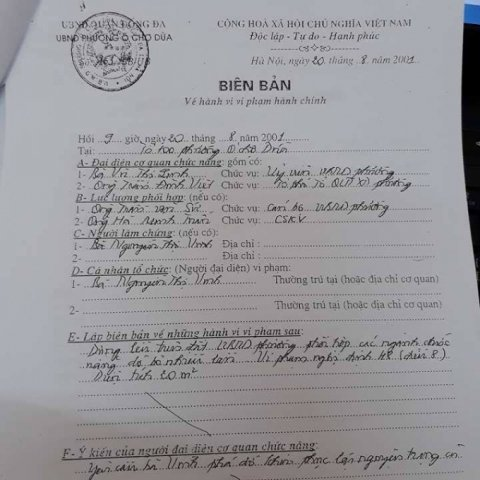 UBND QUẬN ĐỐNG ĐA
UBND PHƯỜNG Ô CHỢ DỪA
CỘNG HOÀ XÃ HỘI CHỦ NGHĨA VIỆT NAM
Độc lập - Tự do - Hạnh phúc
Hà Nội, ngày 20 tháng 8 năm 2001
BIÊN BẢN
Về hành vi vi phạm hành chính
Hồi 9 giờ, ngày 20 tháng 8 năm 2001
Tại: phường Ô chợ Dừa
A- Đại diện cơ quan chức năng: gồm có:
1- Bà Vũ Thị Chức vụ: Uỷ viên UBND phường
2- Ông Trần Đình Việt Chức vụ: Tổ QLTTXD phường
B- Lực lượng phối hợp: (nếu có):
1- Ông Trần Văn Chức vụ: Cán bộ UBND phường
2- Ông Hà Chức vụ: CSKV
C- Người làm chứng: (nếu có):
1- Bà Nguyễn Thị Vinh Địa chỉ :
2- Địa chỉ :
D- Cá nhân tổ chức: (Người đại diện) vi phạm:
1- Bà Nguyễn Thị Vinh Thường trú tại (hoặc địa chỉ cơ quan)
2- Thường trú tại (hoặc địa chỉ cơ quan)
E- Lập biên bản về những hành vi vi phạm sau:
UBND phường phối hợp các ngành chức
năng Vi phạm nghị định 48 (điều 8)
Diện tích 20 m²
F- Ý kiến của người đại diện cơ quan chức năng:
Yêu cầu bà Vinh phá dỡ khôi phục lại nguyên trạng